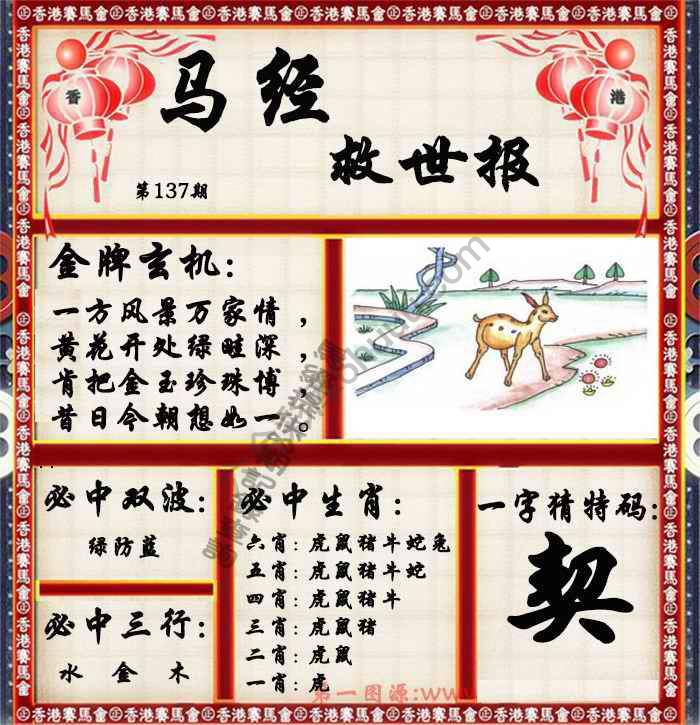 香港賽馬會
香 港
马经
救世报
第137期
金牌玄机：
一方风景万家情，
黄花开处绿畦深，
肯把金玉珍珠博，
昔日今朝想如一。
必中双波：
绿防蓝
必中三行：
水 金 木
必中生肖：
六肖：虎鼠猪牛蛇兔
五肖：虎鼠猪牛蛇
四肖：虎鼠猪牛
三肖：虎鼠猪
二肖：虎鼠
一肖：虎
一字猜特码：
契
第一图源:www